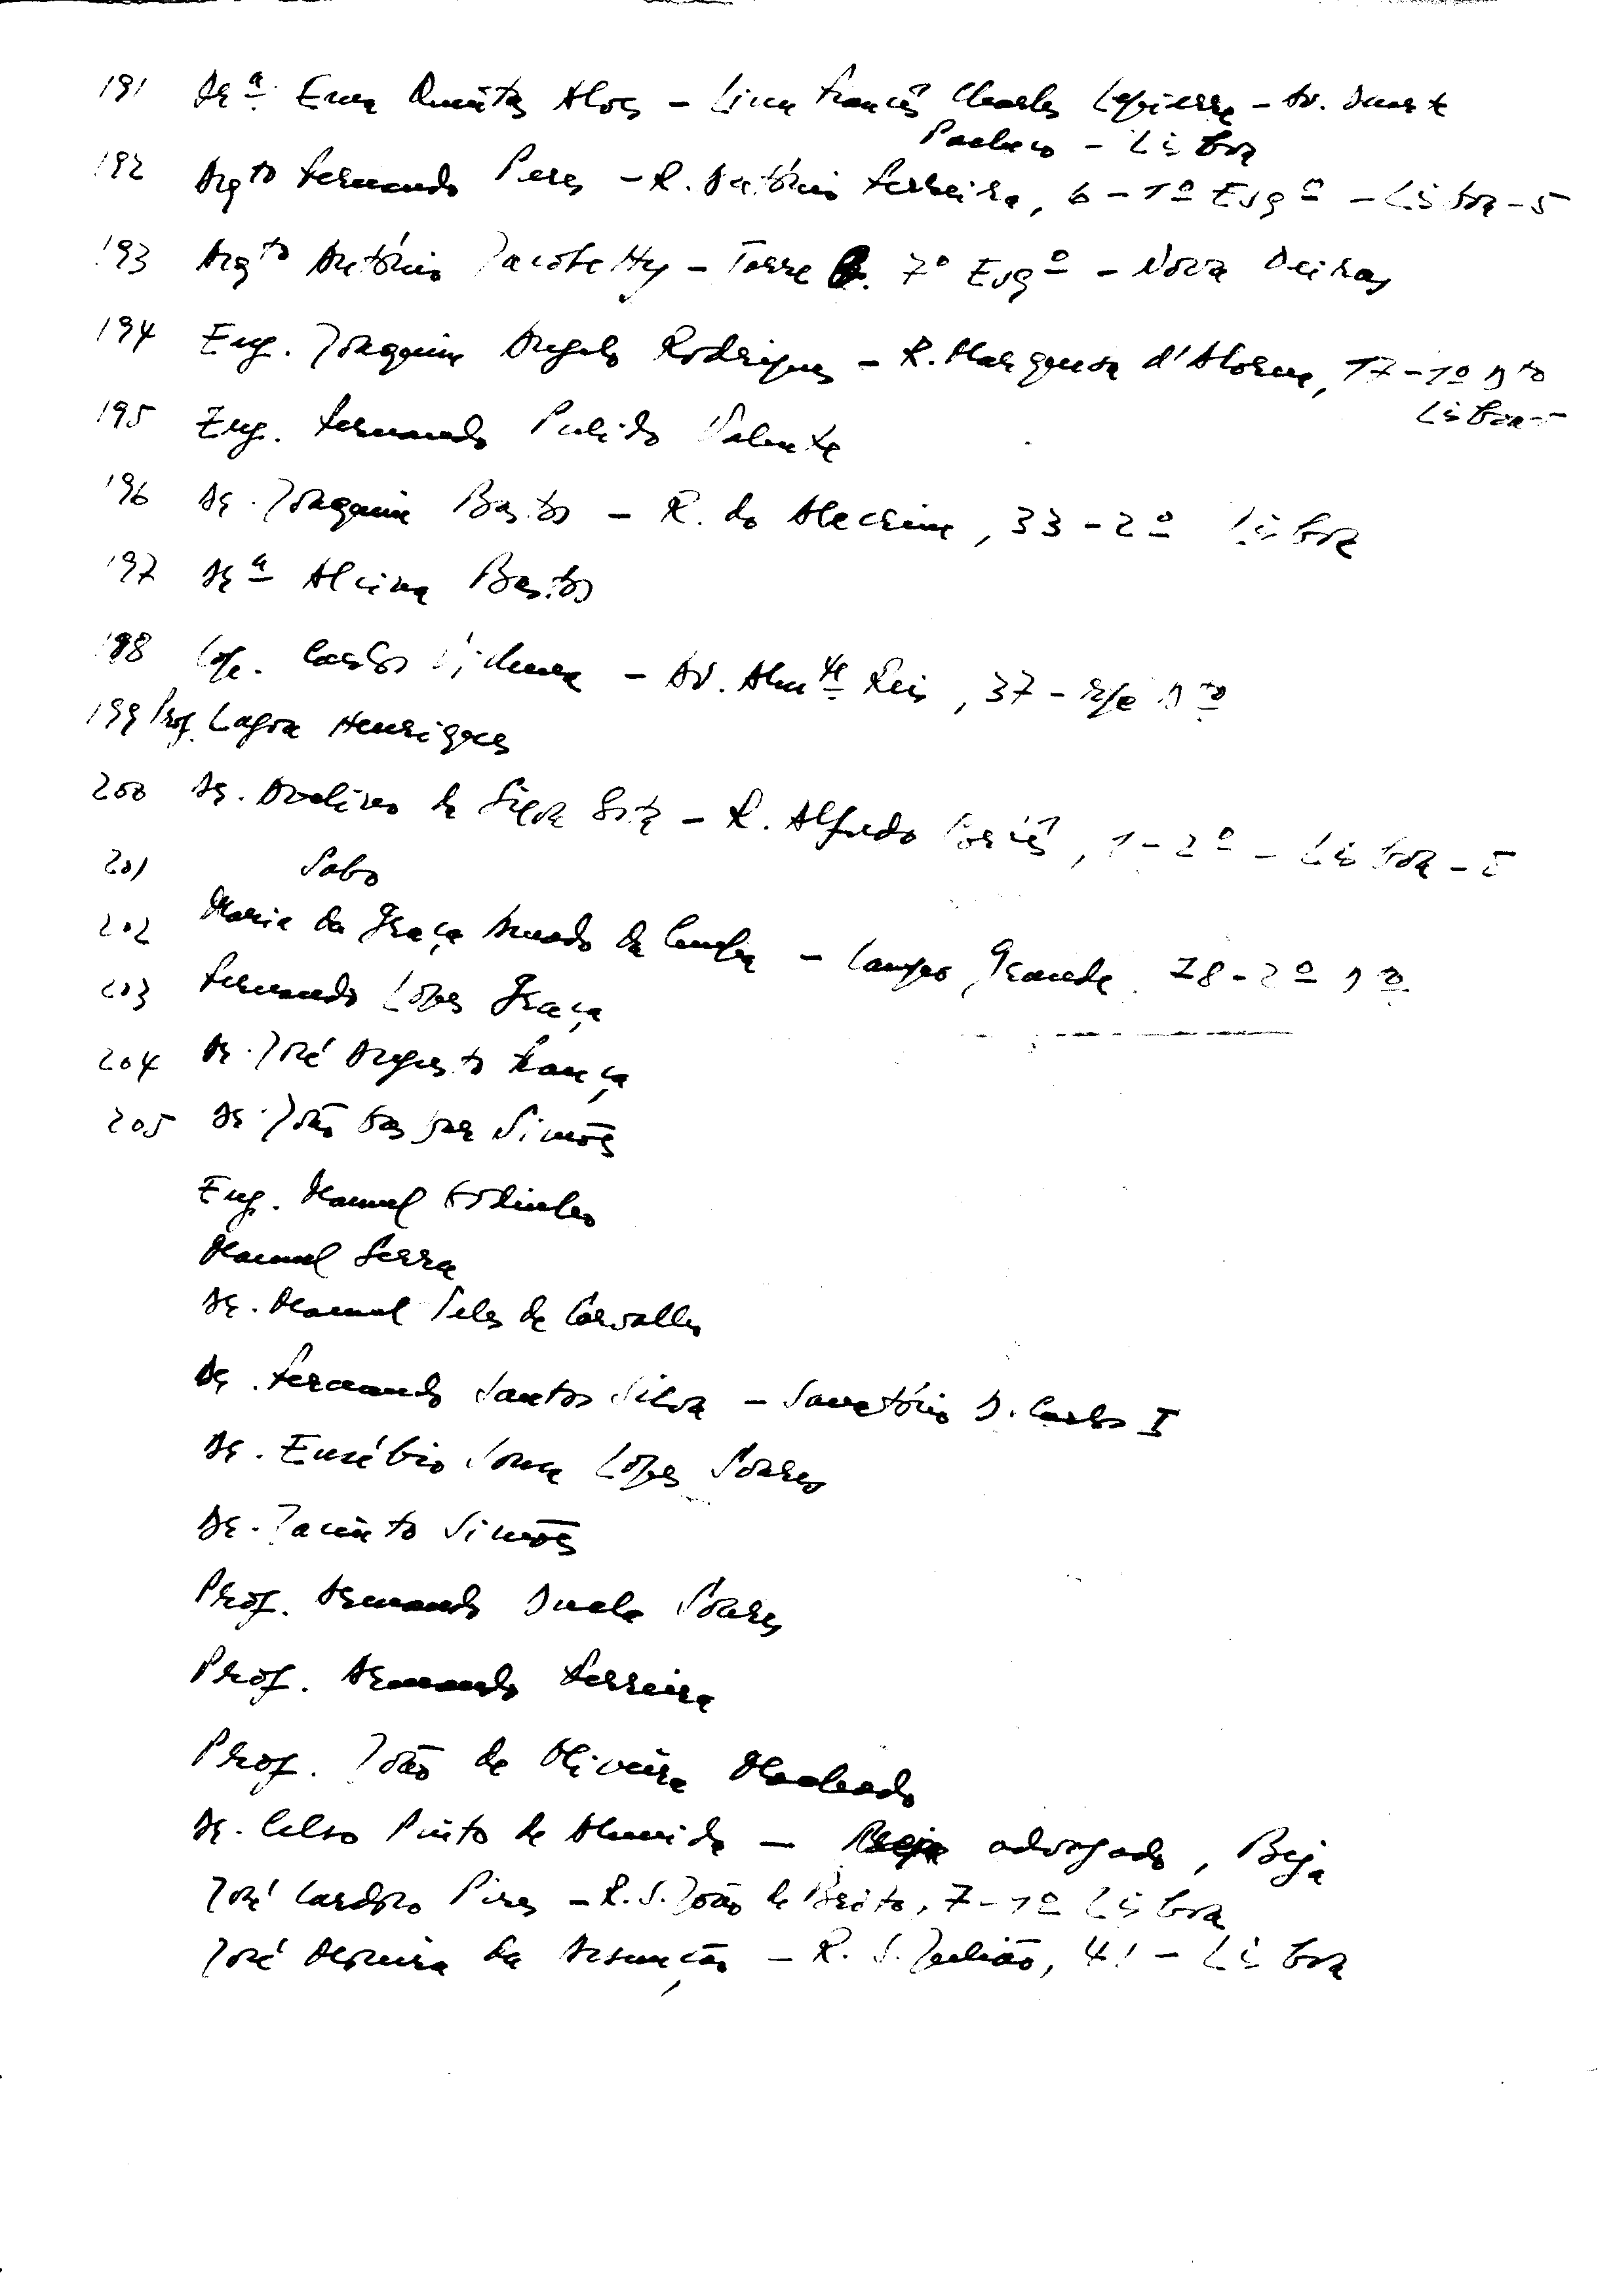 191 Drª. Ema Quintas Alves - Liceu Francês Charles Lepierre - Av. Duarte
Pacheco - Lisboa
192 Arqto Fernando Peres - R. António Ferreira, 6 - 1º Esqº - Lisboa - 5
193 Arqto António Jacobetty - Torre 7º Esqº - Nova Oeiras
194 Eng. Joaquim Angelo Rodrigues - R. Marquesa d'Alorna, 17 - 1º Dto
Lisboa - 5
195 Eng. Fernando Pulido Valente
196 Dr. Joaquim Bastos - R. do Alecrim, 33 - 2º Lisboa
197 Drª Alcina Bastos
198 Carlos Vilhena - Av. Almte Reis, 37 - r/c Dto
199 Prof. Lagoa Henriques
200 Dr. Avelino da Silva - R. Alfredo Cortês, 1 - 2º - Lisboa - 5
201 Sabo
202 Maria da Graça Amado da Cunha - Campo Grande, 78 - 2º Dto.
203 Fernando Lopes Graça
204 Dr. José Augusto França
205 Dr. João Gaspar Simões
Eng. Manuel Godinho
Manuel Serra
Dr. Manuel Teles de Carvalho
Dr. Fernando Santos Silva - Sanatório D. Carlos I
Dr. Eusébio Lopes Soares
Dr. Jacinto Simões
Prof. Armando Ducla Soares
Prof. Armando Ferreira
Prof. João de Oliveira Machado
Dr. Celso Pinto de Almeida - advogado, Beja
José Cardoso Pires - R. S. João de Brito, 7 - 1º Lisboa
José Moreira da Assunção - R. S. Julião, 41 - Lisboa